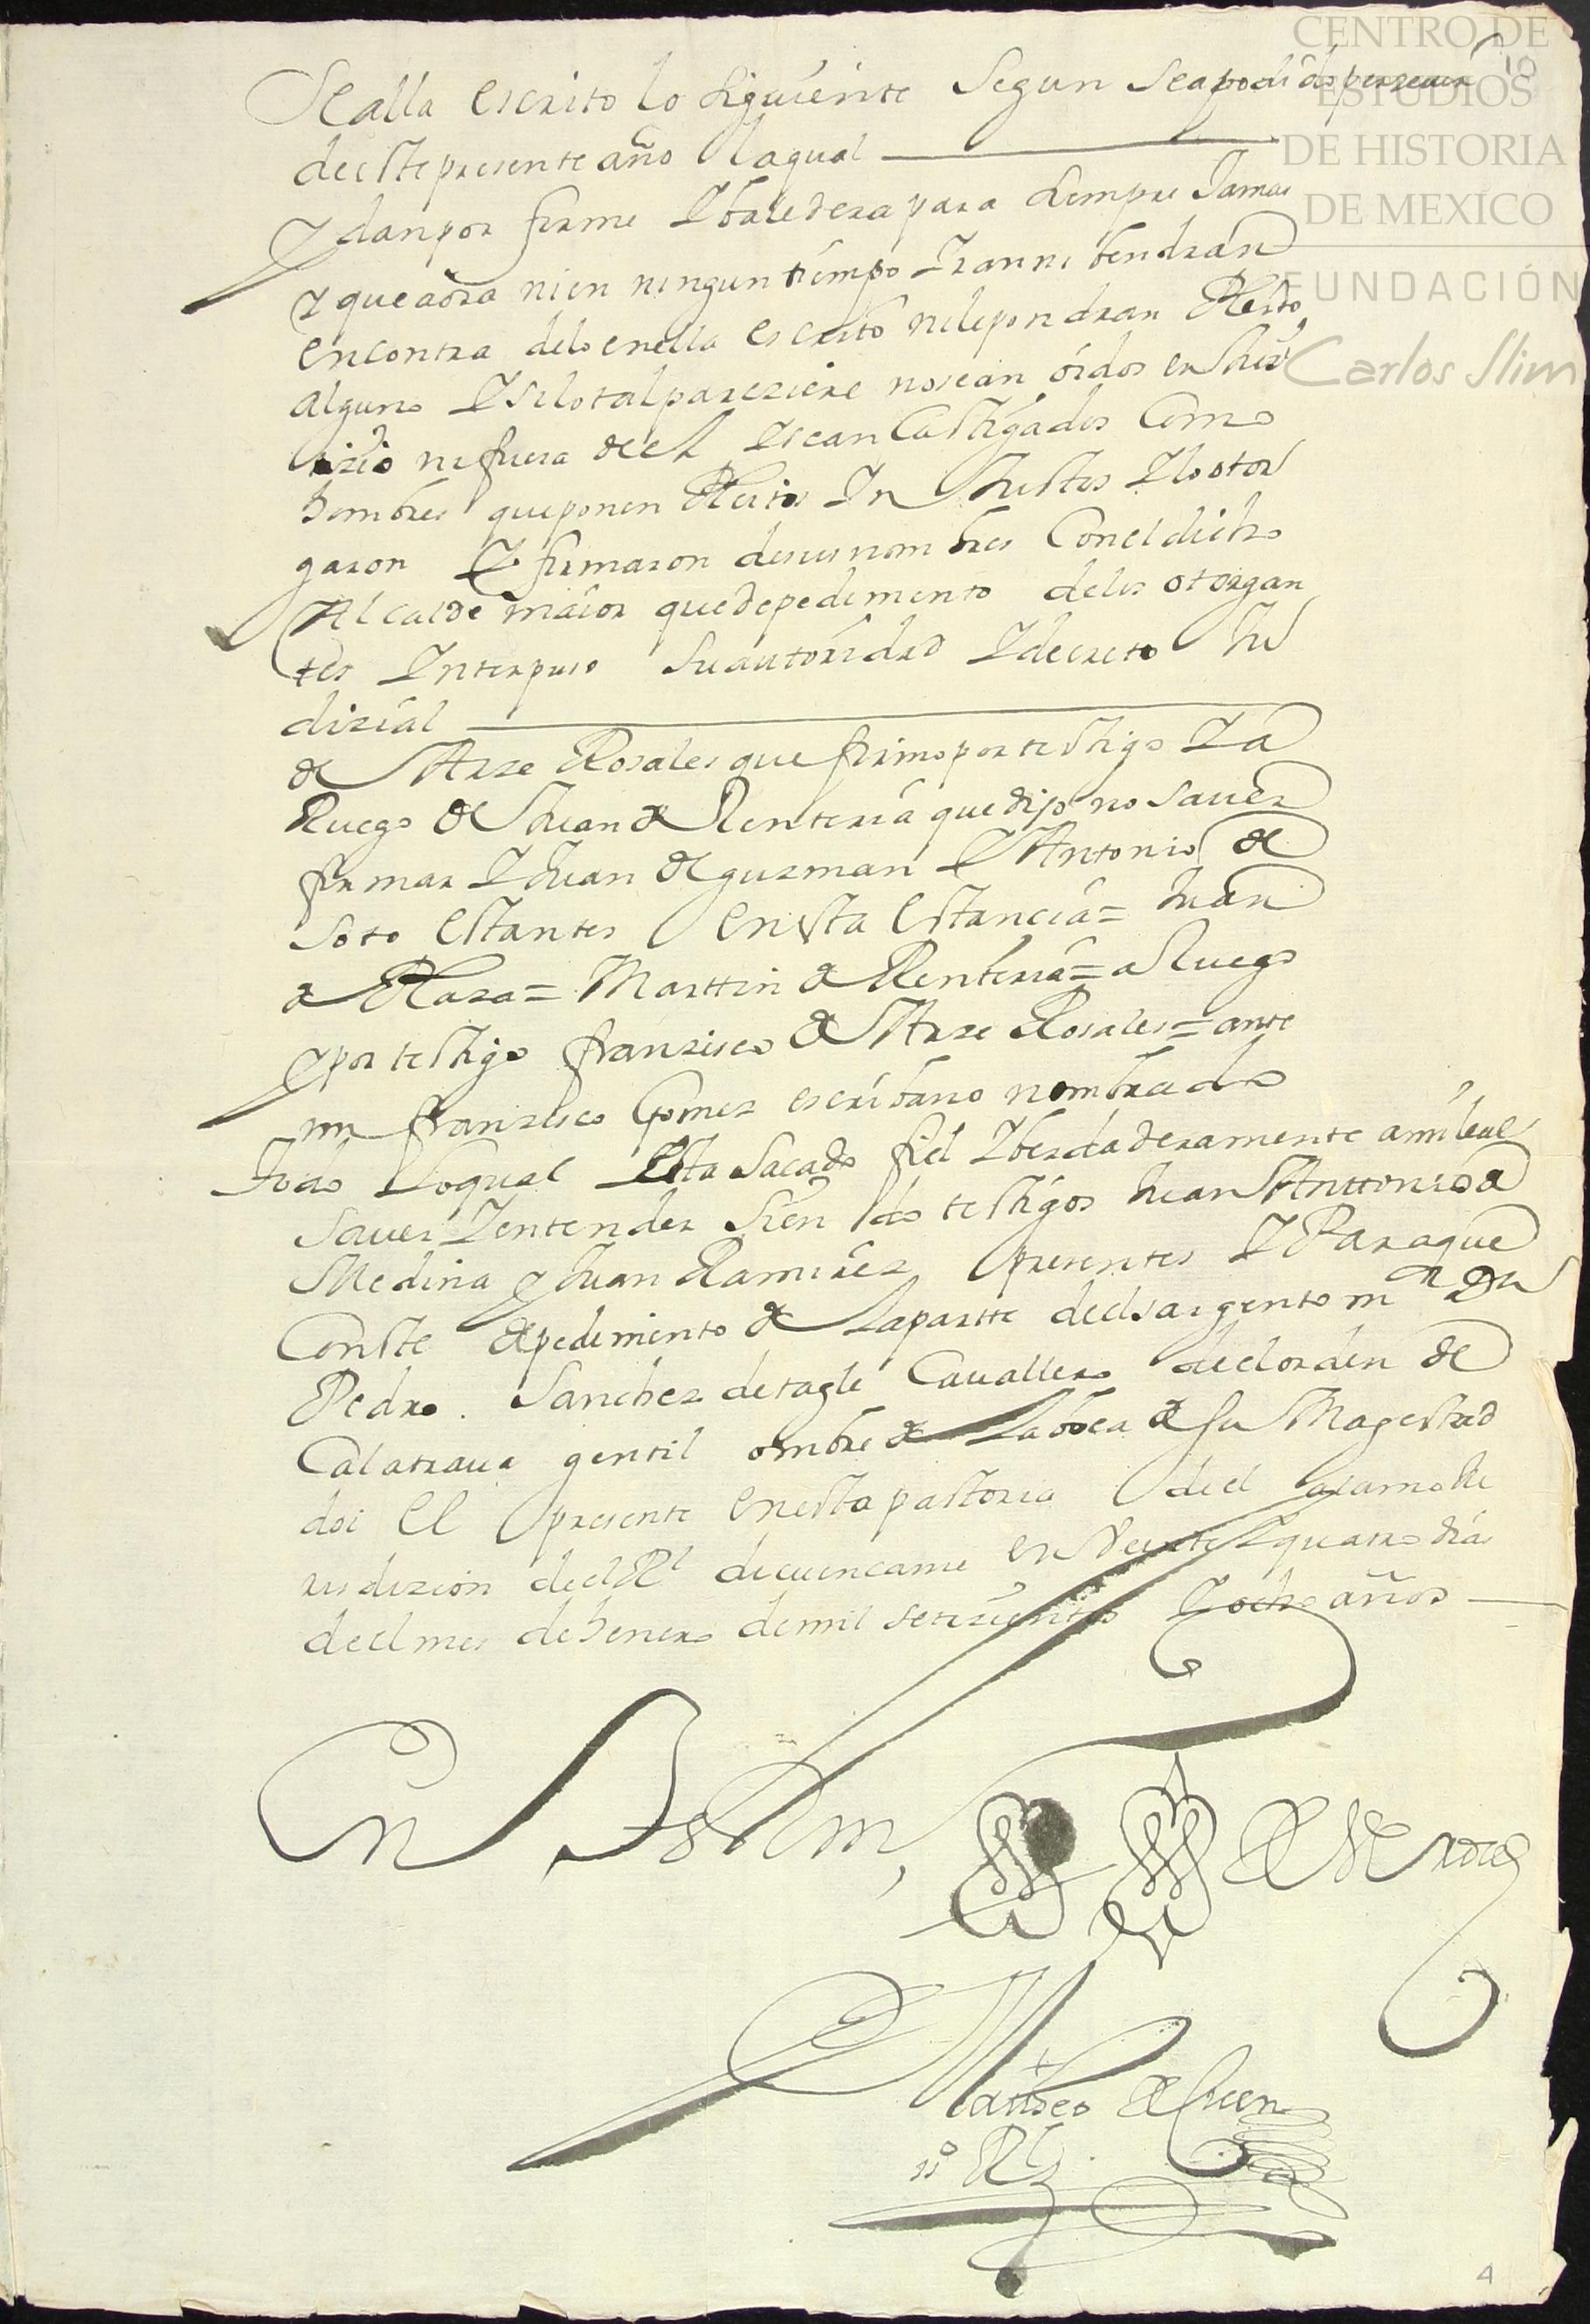 CENTRO DE
ESTUDIOS
DE HISTORIA
DE MEXICO
FUNDACIÓN
Carlos Slim
10
Se alla escrito lo siguiente segun se a podido perzeuir
de este presente año la qual
y dan por firme y baledera para siempre Jamas
y que aora ni en ningun tiempo Iran ni bendran
en contra de lo en ella escrito ni le pondran Pleito
alguno y si lo tal pareziere no sean oidos en Jui
zio ni fuera de el y sean Castigados Como
hombres que ponen Pleitos In Justos y lo otor
garon y firmaron de sus nombres Con el dicho
Alcalde maior que de pedimento de los otorgan
tes Interpuso su autoridad y decreto Ju
dizial
de Arze Rosales que firmo por testigo y a
Ruego de Juan de Renteria que dijo no sauer
firmar y Juan de guzman y Antonio de
Soto estantes en esta estancia = Juan
de Plaza = Marttin de Renteria = a Ruego
y por testigo franzisco de Arze Rosales = ante
mi franzisco Gomez escribano nombrado
Todo lo qual esta sacado fiel y berdaderamente a mi leal
sauer y entender sien do testigos Juan Anttonio de
Medina y Juan Ramirez presentes y Para que
Conste de pedimento de la partte de el sargento mr Dn
Pedro Sanchez de tagle Cauallero de el orden de
Calatraua gentil ombre de la boca de su Magestad
doi el presente en esta pastoria de el alamo Ju
risdizion de el Rl de cuencame en Veinte y quatro dias
de el mes de henero de mil setezientos y ocho años
En
de Verdad
Matheo de
4